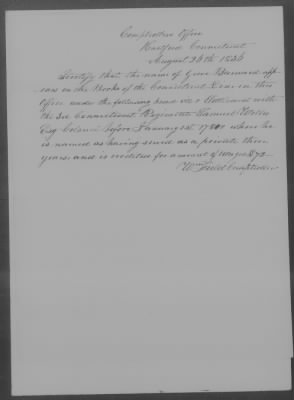 Comptrollers Office
Hartford Connecticut
August 24th 1836
I certify that the name of Barnard app-
ears on the Books of the Connecticut Line in this
Office under the following head viz: Settlement with
the 3rd Connecticut Regiment Samuel
Esq Colonel before January 1st 1780 where he
is named as having served as a private three
years and is creditor for amount of wages £73
Wm Field Comptroller